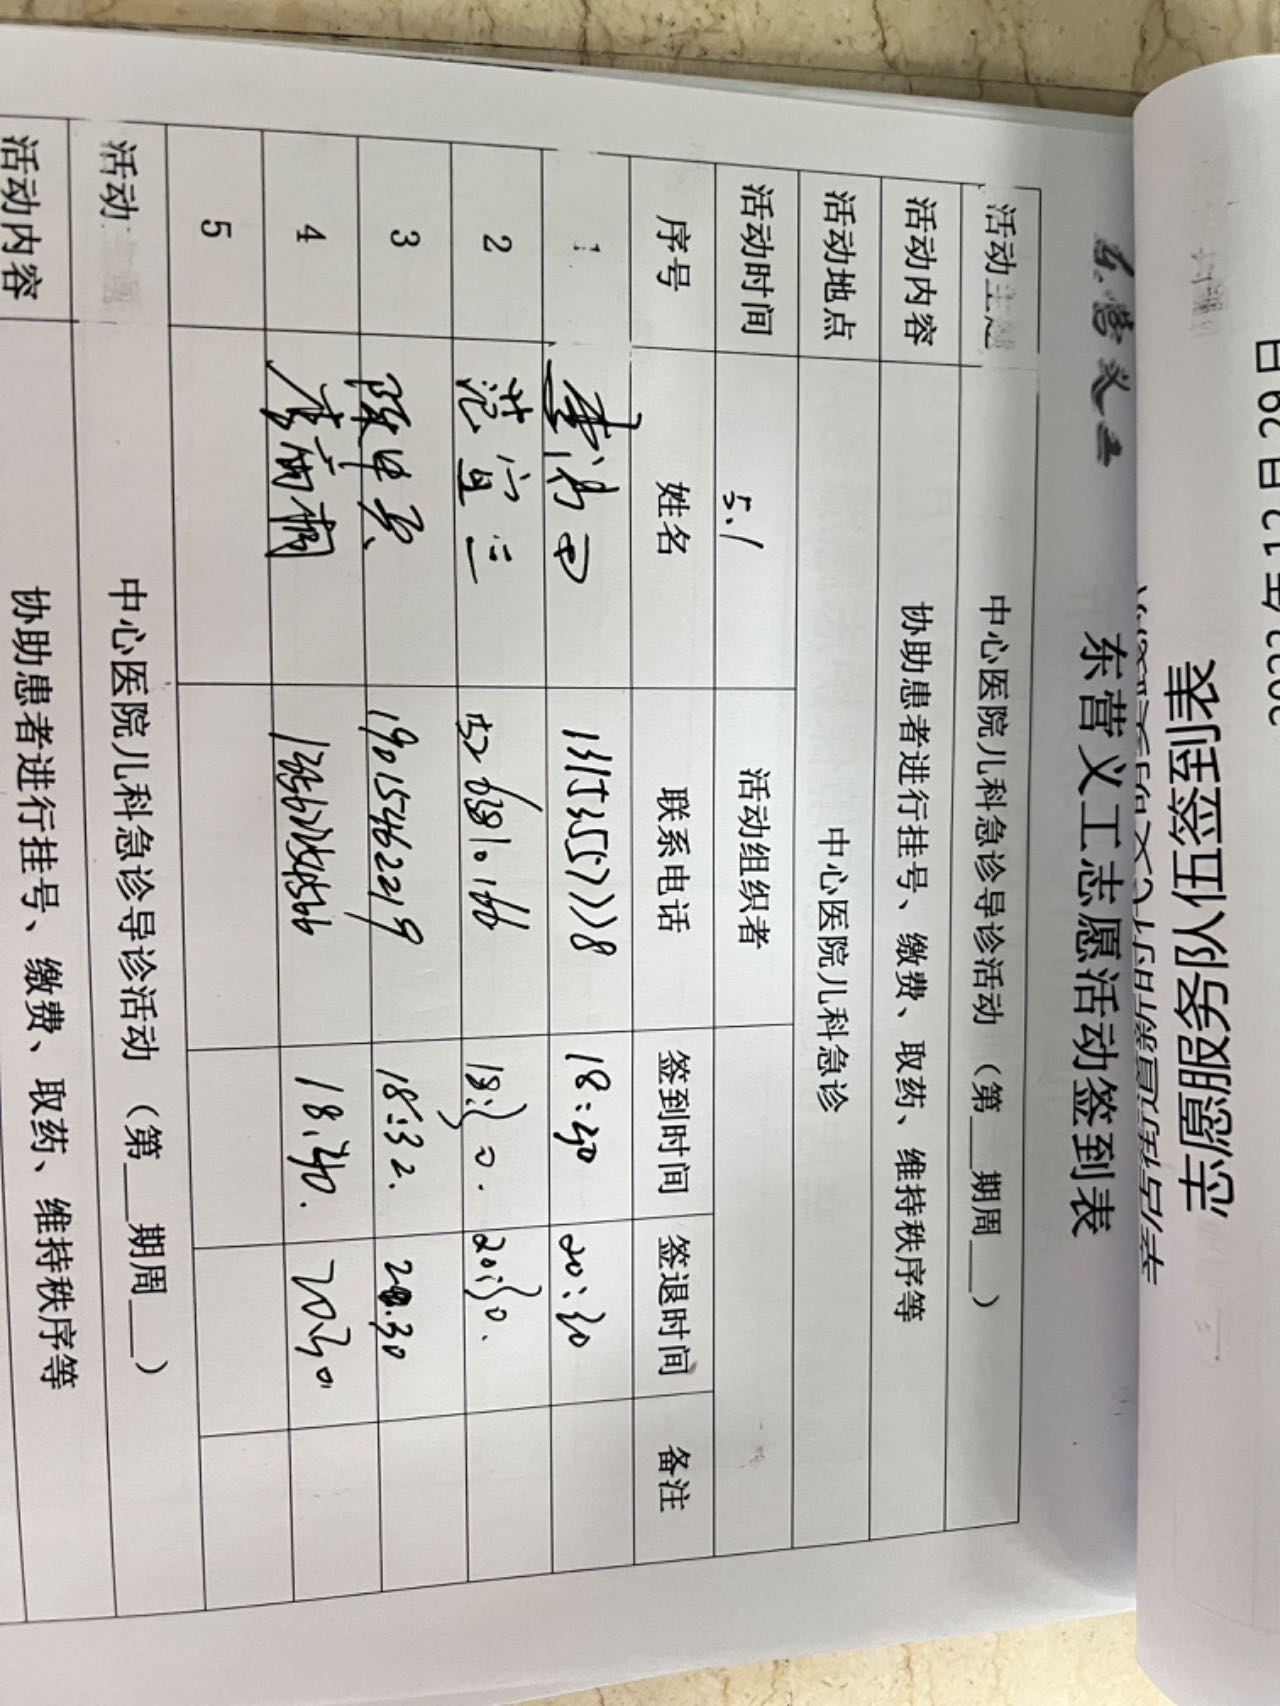 志愿服务队伍签到表
东营义工
东营义工志愿活动签到表
活动主题 中心医院儿科急诊导诊活动（第__期周__）
活动内容 协助患者进行挂号、缴费、取药、维持秩序等
活动地点 中心医院儿科急诊
活动时间 5.1 活动组织者
序号 姓名 联系电话 签到时间 签退时间 备注
1 18:30 20:30
2 范宜三 18:30. 20:30.
3 19015462219 18:32. 20.30
4 18:30. 20:30
5
活动 中心医院儿科急诊导诊活动（第__期周__）
活动内容 协助患者进行挂号、缴费、取药、维持秩序等